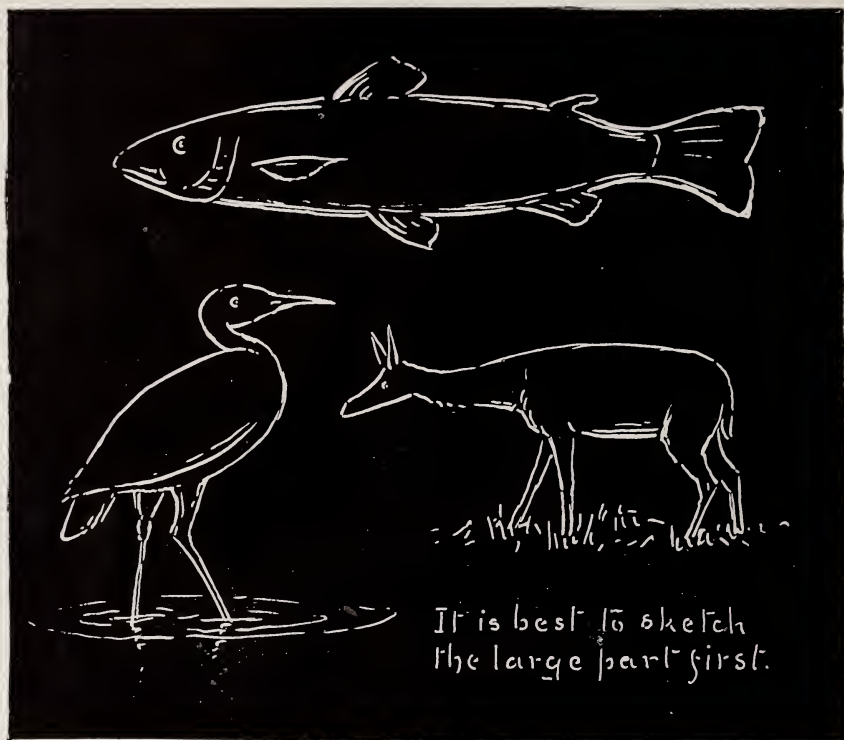 It is best to sketch
the large part first.